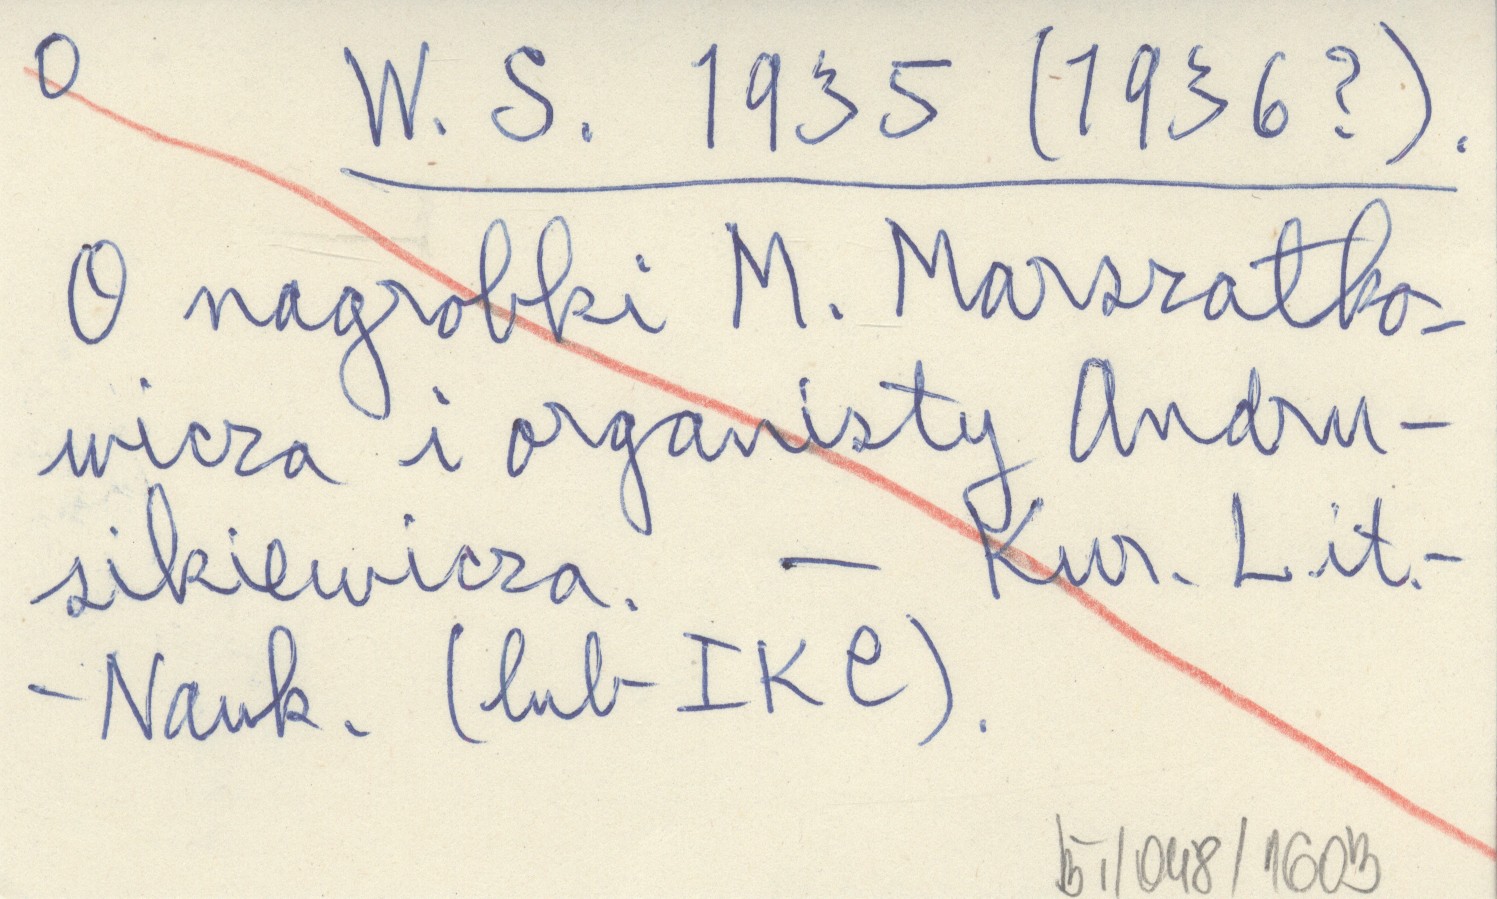 O W. S. 1935 (1936?).
O nagrobki M. Marszałko-
wicza i organisty Andru-
sikiewicza. — Kur. Lit.-
-Nauk. (lub IKC).
BI/048/1603